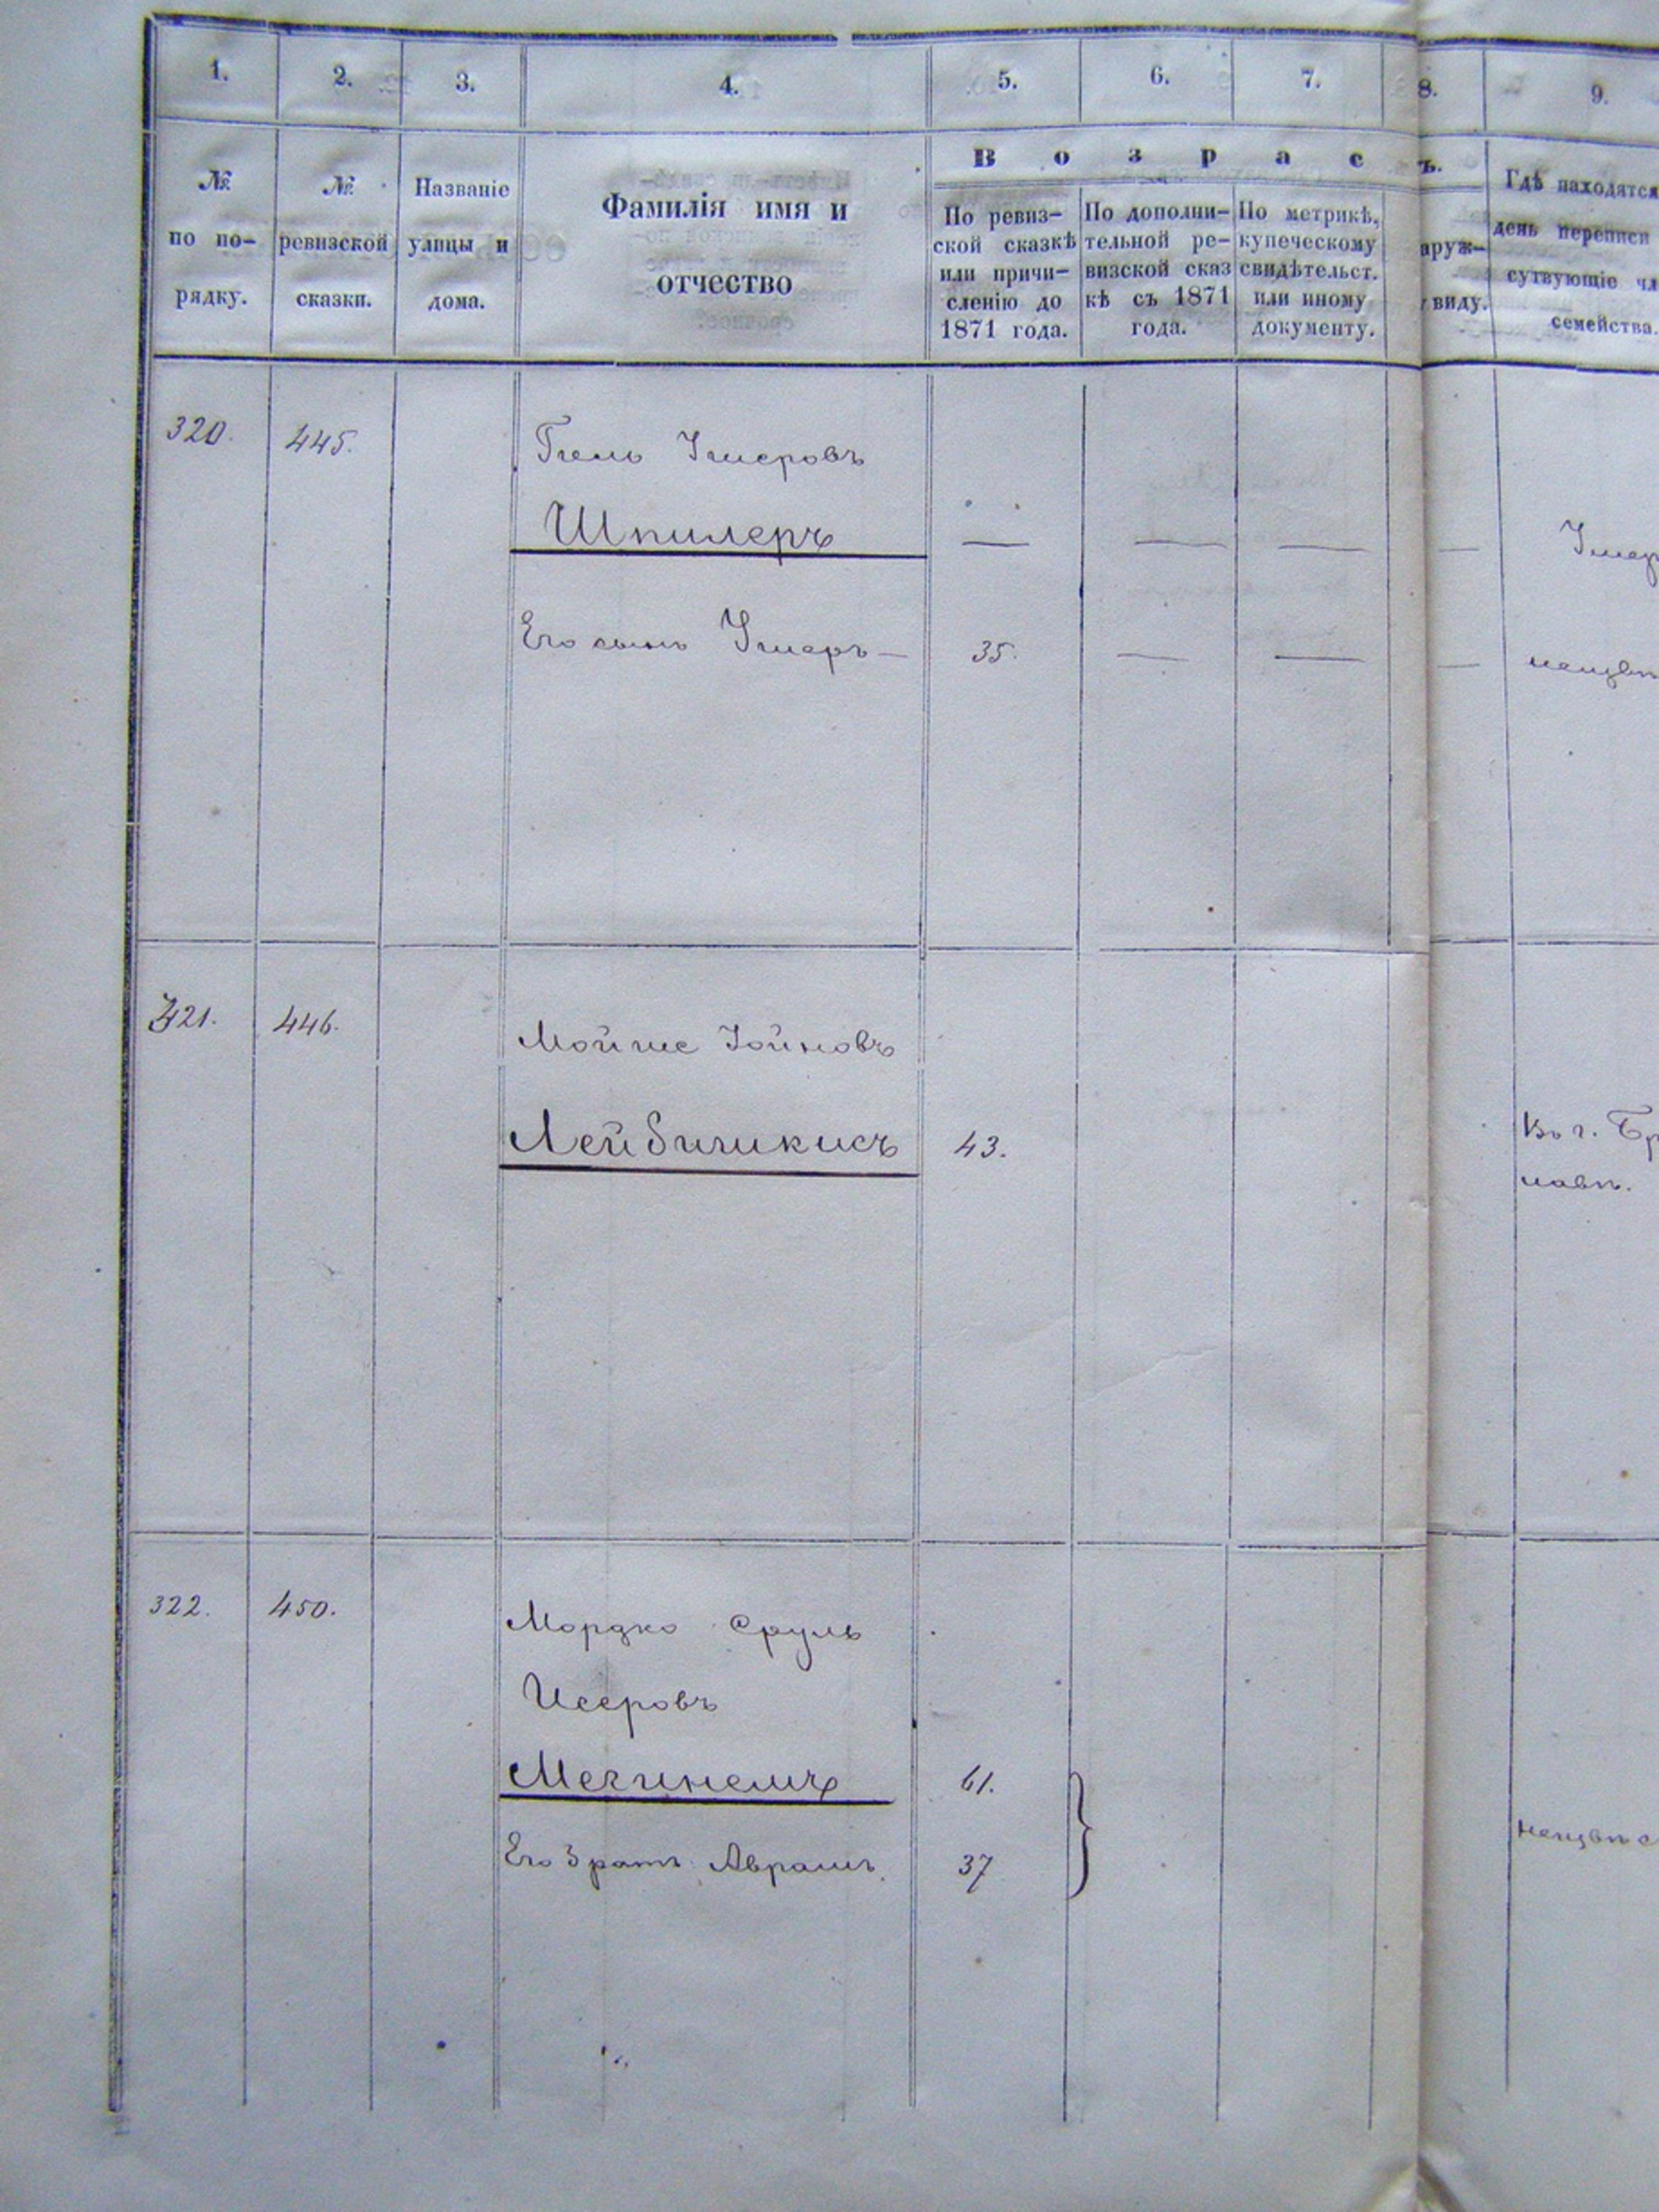 1. 2. 3. 4. 5. 6. 7. 8. 9.
№ по по- рядку.
№ ревизской сказки.
Названіе улицы и дома.
Фамилія имя и
отчество
В о з р а с ъ.
По ревиз-
ской сказкѣ
или причи-
сленію до
1871 года.
По дополни-
тельной ре-
визской сказ
кѣ съ 1871
года.
По метрикѣ,
купеческому
свидѣтельст.
или иному
документу.
аруж-
виду.
Гдѣ находятся
день переписи
сутвующіе чл
семейства.
320. 445.
Шпилеръ — — — —
Его сынъ 35. — — —
321. 446. Мойше Іойновъ
Лейбичикисъ 43. Въ г. Бр
лавѣ.
322. 450. Мордко Сруль
Исеровъ
61.
Его братъ Аврамъ. 37 }